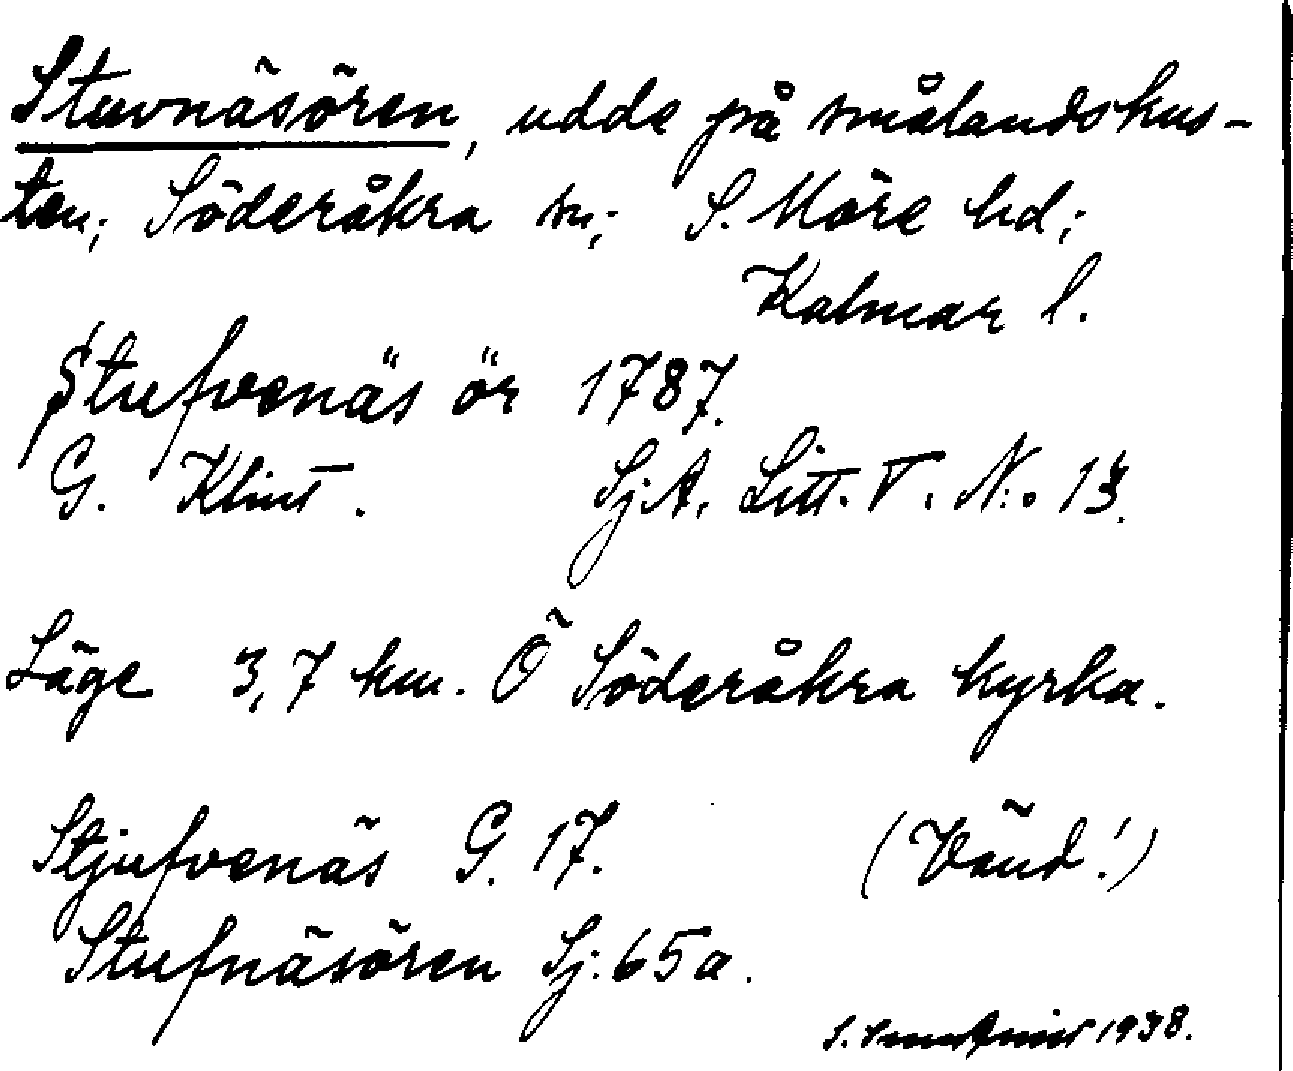 Stuvnäsören, udde på smålandskus-
ten; Söderåkra sn; S. Möre hd;
Kalmar l.
Stufvenäs ör 1787.
G. Klint. Sj.A. Litt. T. N:o 13.
Läge 3,7 km. Ö Söderåkra kyrka.
Stjufvenäs G. 17. (Vänd!)
Stufnäsören Sj. 65a.
S. 1938.